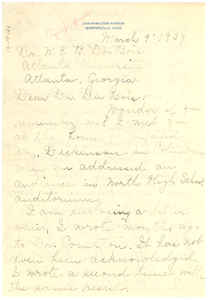 WESTERVILLE, OHIO
March 9" 1939
Dr. W. E. B. Du Bois
Atlanta University
Atlanta, Georgia.
Dear Dr. Du Bois:
Wonder if you
remember me? I met you
at the home and
Mrs. Dickinson in Columbus
when you addressed an
audience in North High School
auditorium.
I am enclosing a letter
which I wrote months ago
to Dr. . It has not
even been acknowledged.
I wrote a second time with
the same result.